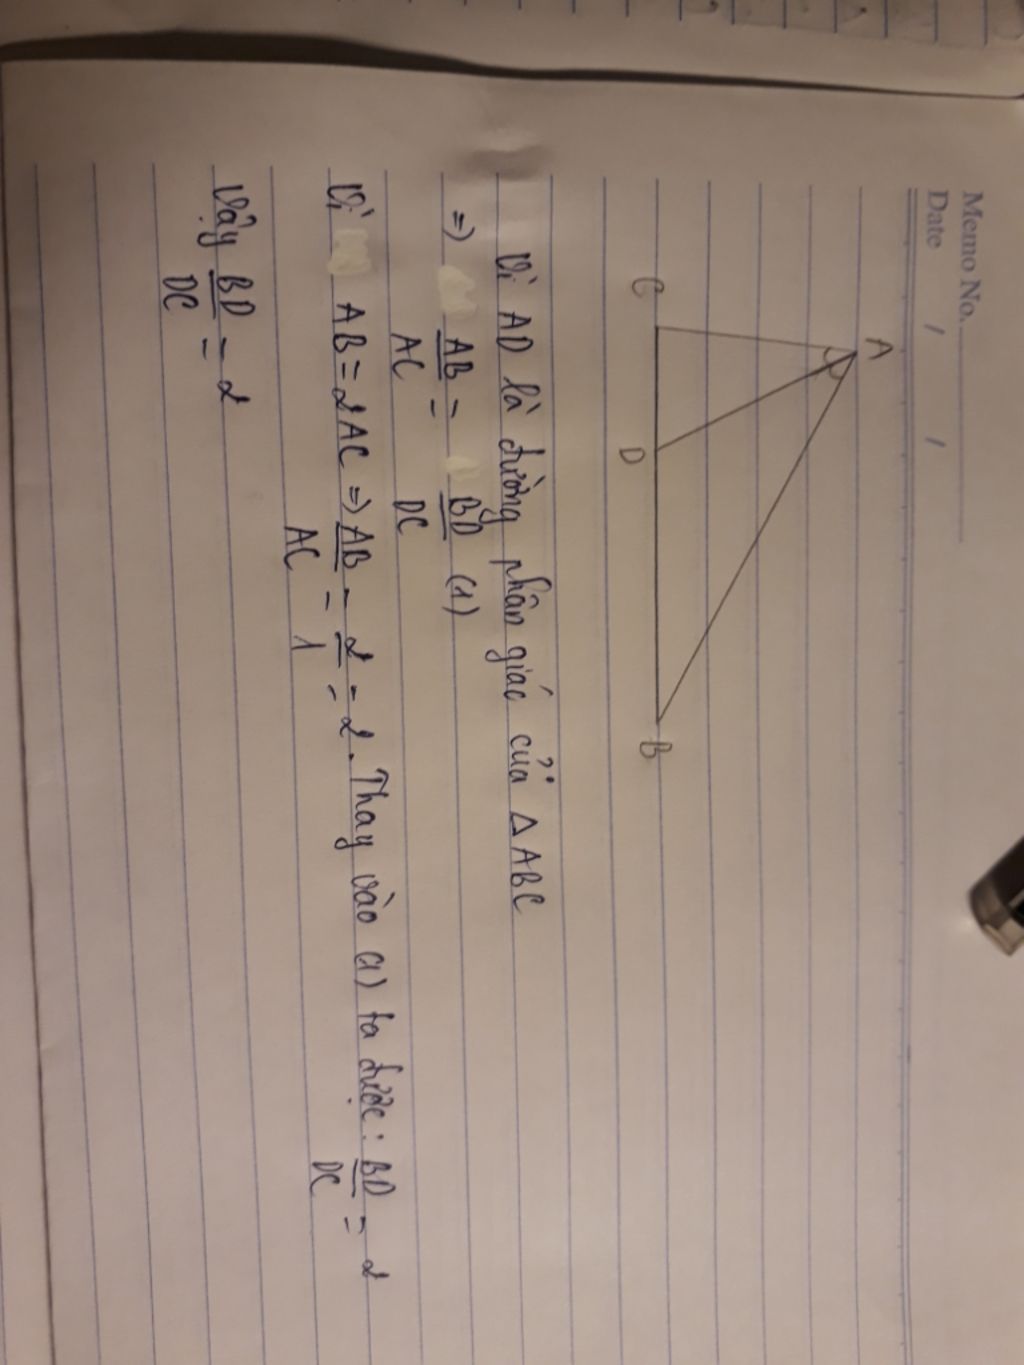 Memo No.
Date / /
A
C D B
Vì AD là đường phân giác của Δ ABC
=) AB/AC = BD/DC (1)
Vì AB = 2AC => AB/AC = 2/1 = 2. Thay vào (1) ta được: BD/DC = 2
Vậy BD/DC = 2